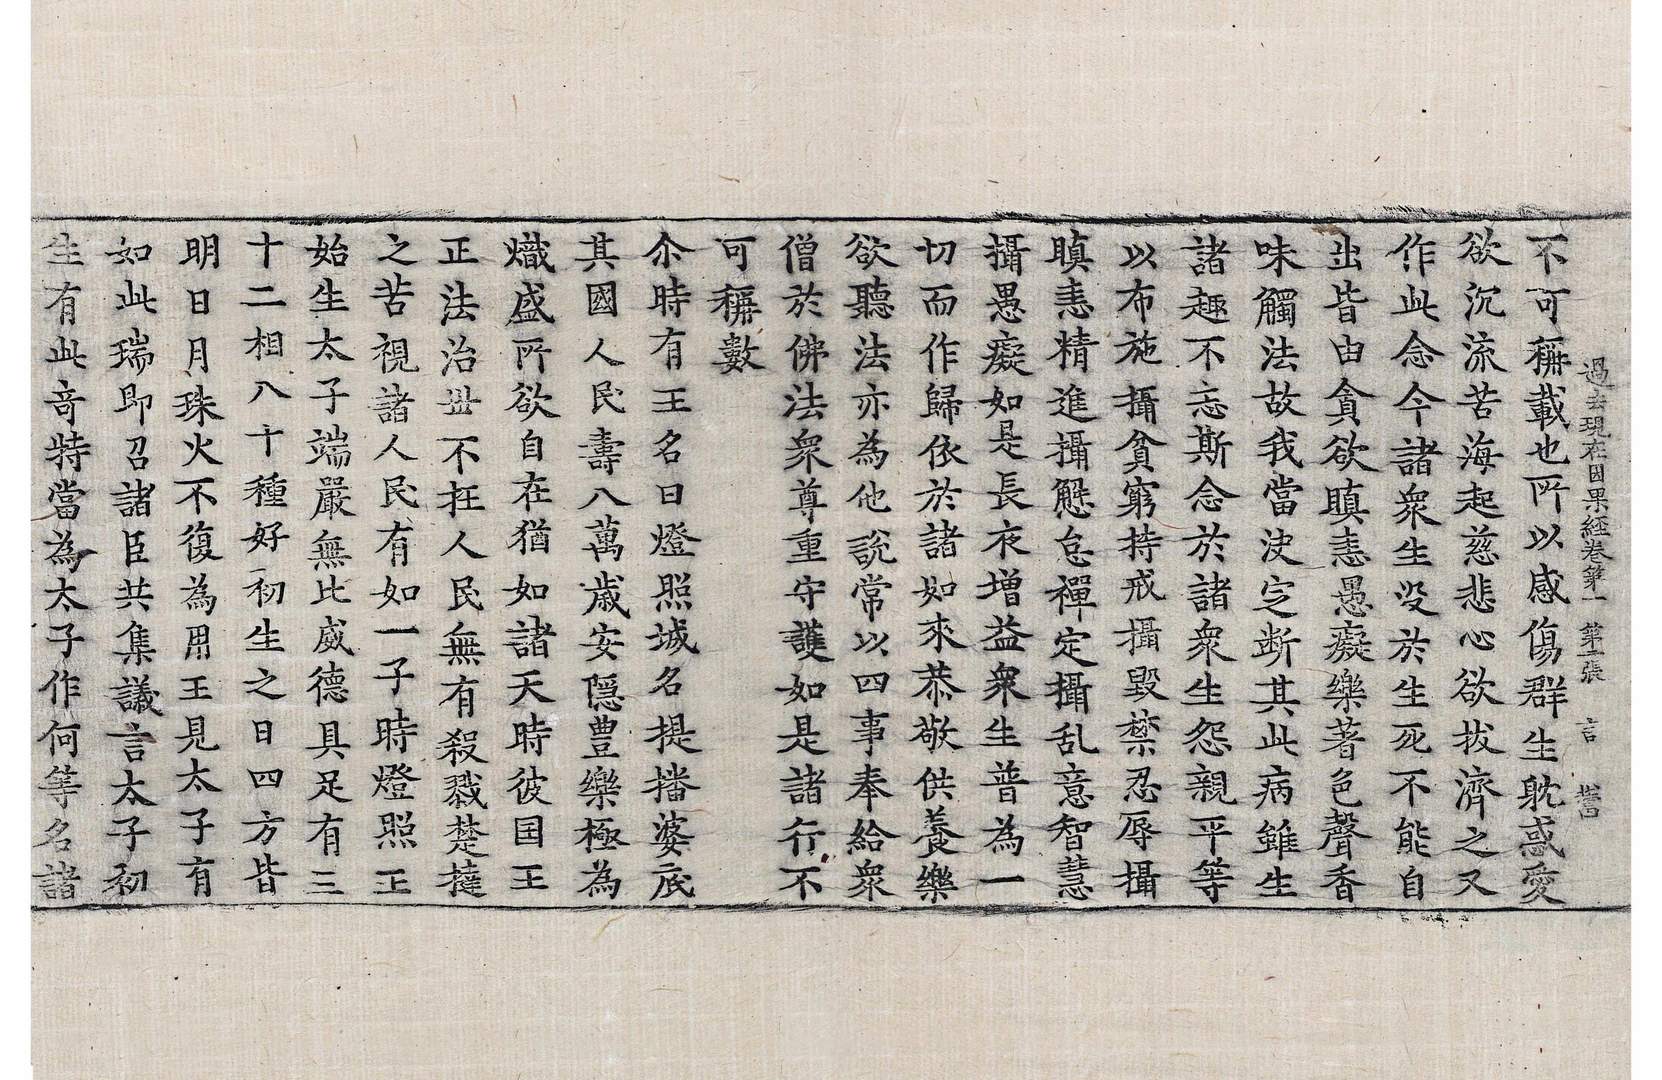 過去現在因果経卷第一 第二張 言 誓
不可稱載也所以感傷群生躭惑愛
欲沉流苦海起慈悲心欲拔濟之又
作此念今諸衆生沒於生死不能自
出皆由貪欲瞋恚愚癡樂著色聲香
味觸法故我當決定断其此病雖生
諸趣不忘斯念於諸衆生怨親平等
以布施攝貧窮持戒攝毀禁忍辱攝
瞋恚精進攝懈怠禪定攝乱意智慧
攝愚癡如是長夜增益衆生普為一
切而作歸依於諸如來恭敬供養樂
欲聽法亦為他說常以四事奉給衆
僧於佛法衆尊重守護如是諸行不
可稱數
尒時有王名曰燈照城名提播婆底
其國人民壽八萬歲安隱豊樂極為
熾盛所欲自在猶如諸天時彼国王
正法治丗不枉人民無有殺戮楚撻
之苦視諸人民有如一子時燈照王
始生太子端嚴無比威德具足有三
十二相八十種好初生之日四方皆
明日月珠火不復為用王見太子有
如此瑞即召諸臣共集議言太子初
生有此奇特當為太子作何等名諸